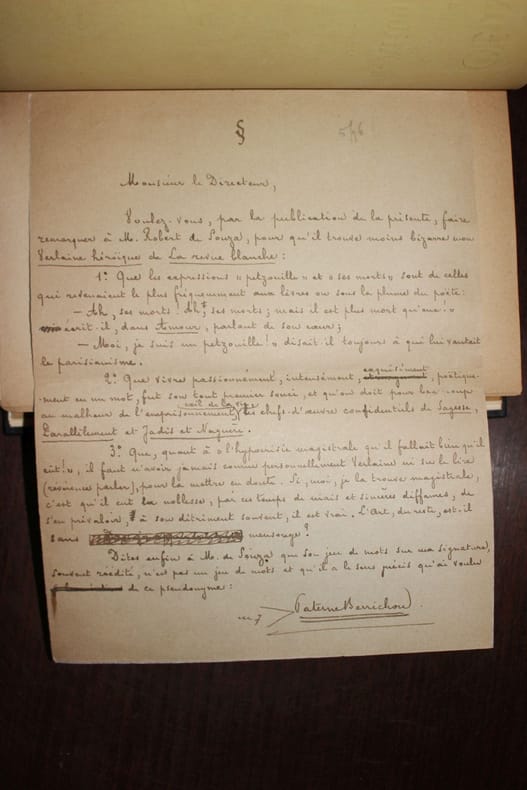 §
Monsieur le Directeur,
Voulez-vous, par la publication de la présente, faire
remarquer à M. Robert de Souza, pour qu'il trouve moins bizarre mon
Verlaine héroïque de La revue blanche :
1° Que les expressions « petzouille » et « ses morts » sont de celles
qui revenaient le plus fréquemment aux lèvres ou sous la plume du poète :
— Ah, ses morts ! Ah, ses morts ; mais il est plus mort qu'eux ! »
écrit-il, dans Amour, parlant de son cœur ;
— Moi, je suis un petzouille ! » disait-il toujours à qui lui vantait
le parisianisme.
exquisément
2° Que vivre passionnément, intensément, poétique-
ment en un mot, fut son tout premier souci, et qu'on doit pour beaucoup
au malheur de l'emprisonnement, les chefs-d'œuvre confidentiels de Sagesse,
Parallèlement et Jadis et Naguère.
3° Que, quant à « l'hypocrisie magistrale qu'il fallait bien qu'il
eût ! », il faut n'avoir jamais connu personnellement Verlaine ni su le lire
(révérence parler), pour la mettre en doute. Si, moi, je la trouve magistrale,
c'est qu'il eut la noblesse, par ces temps de niais et sinistres diffames, de
s'en prévaloir, à son détriment souvent, il est vrai. L'Art, du reste, est-il
sans mensonge ?
Dites enfin à M. de Souza que son jeu de mots sur ma signature,
souvent réédité, n'est pas un jeu de mots et qu'il a le sens précis qu'ai voulu
de ce pseudonyme :
Paterne Berrichon